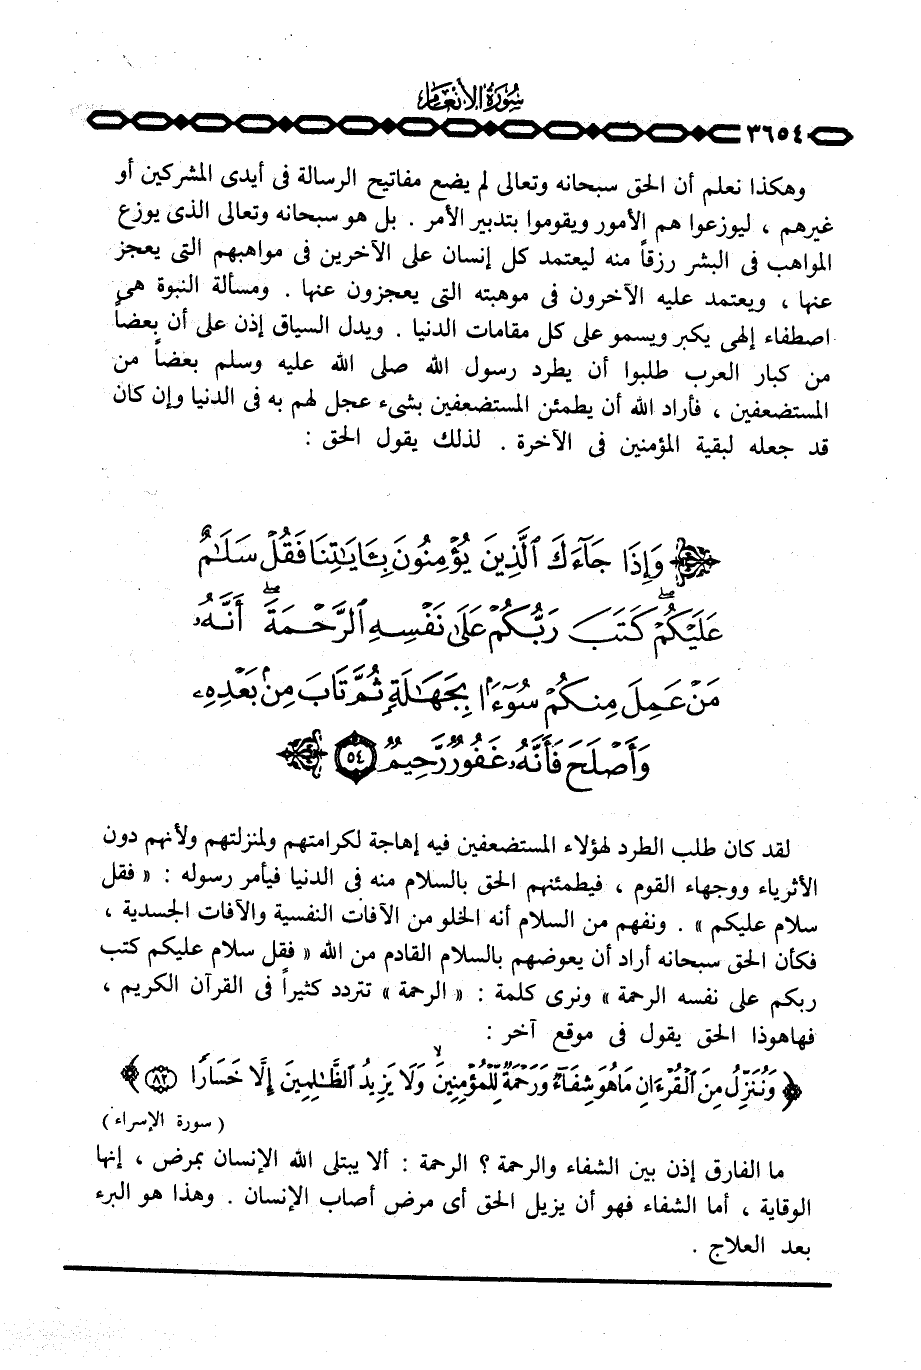 سُورَةُ الأنعَام
٣٦٥٤
وهكذا نعلم أن الحق سبحانه وتعالى لم يضع مفاتيح الرسالة فى أيدى المشركين أو
غيرهم ، ليوزعوا هم الأمور ويقوموا بتدبير الأمر . بل هو سبحانه وتعالى الذى يوزع
المواهب فى البشر رزقاً منه ليعتمد كل إنسان على الآخرين فى مواهبهم التى يعجز
عنها ، ويعتمد عليه الآخرون فى موهبته التى يعجزون عنها . ومسألة النبوة هى
اصطفاء إلهى يكبر ويسمو على كل مقامات الدنيا . ويدل السياق إذن على أن بعضاً
من كبار العرب طلبوا أن يطرد رسول الله صلى الله عليه وسلم بعضاً من
المستضعفين ، فأراد الله أن يطمئن المستضعفين بشىء عجل لهم به فى الدنيا وإن كان
قد جعله لبقية المؤمنين فى الآخرة . لذلك يقول الحق :
وَإِذَا جَآءَكَ ٱلَّذِينَ يُؤْمِنُونَ بِـَٔايَٰتِنَا فَقُلْ سَلَٰمٌ
عَلَيْكُمْ ۖ كَتَبَ رَبُّكُمْ عَلَىٰ نَفْسِهِ ٱلرَّحْمَةَ ۖ أَنَّهُۥ
مَنْ عَمِلَ مِنكُمْ سُوٓءًۢا بِجَهَٰلَةٍ ثُمَّ تَابَ مِنۢ بَعْدِهِۦ
وَأَصْلَحَ فَأَنَّهُۥ غَفُورٌ رَّحِيمٌ ٥٤
لقد كان طلب الطرد لهؤلاء المستضعفين فيه إهاجة لكرامتهم ولمنزلتهم ولأنهم دون
الأثرياء ووجهاء القوم ، فيطمئنهم الحق بالسلام منه فى الدنيا فيأمر رسوله : « فقل
سلام عليكم » . ونفهم من السلام أنه الخلو من الآفات النفسية والآفات الجسدية ،
فكأن الحق سبحانه أراد أن يعوضهم بالسلام القادم من الله « فقل سلام عليكم كتب
ربكم على نفسه الرحمة » ونرى كلمة : « الرحمة » تتردد كثيراً فى القرآن الكريم ،
فهاهوذا الحق يقول فى موقع آخر :
﴿ وَنُنَزِّلُ مِنَ ٱلْقُرْءَانِ مَا هُوَ شِفَآءٌ وَرَحْمَةٌ لِّلْمُؤْمِنِينَ ۙ وَلَا يَزِيدُ ٱلظَّٰلِمِينَ إِلَّا خَسَارًا ٨٢ ﴾
( سورة الإسراء )
ما الفارق إذن بين الشفاء والرحمة ؟ الرحمة : ألا يبتلى الله الإنسان بمرض ، إنها
الوقاية ، أما الشفاء فهو أن يزيل الحق أى مرض أصاب الإنسان . وهذا هو البرء
بعد العلاج .